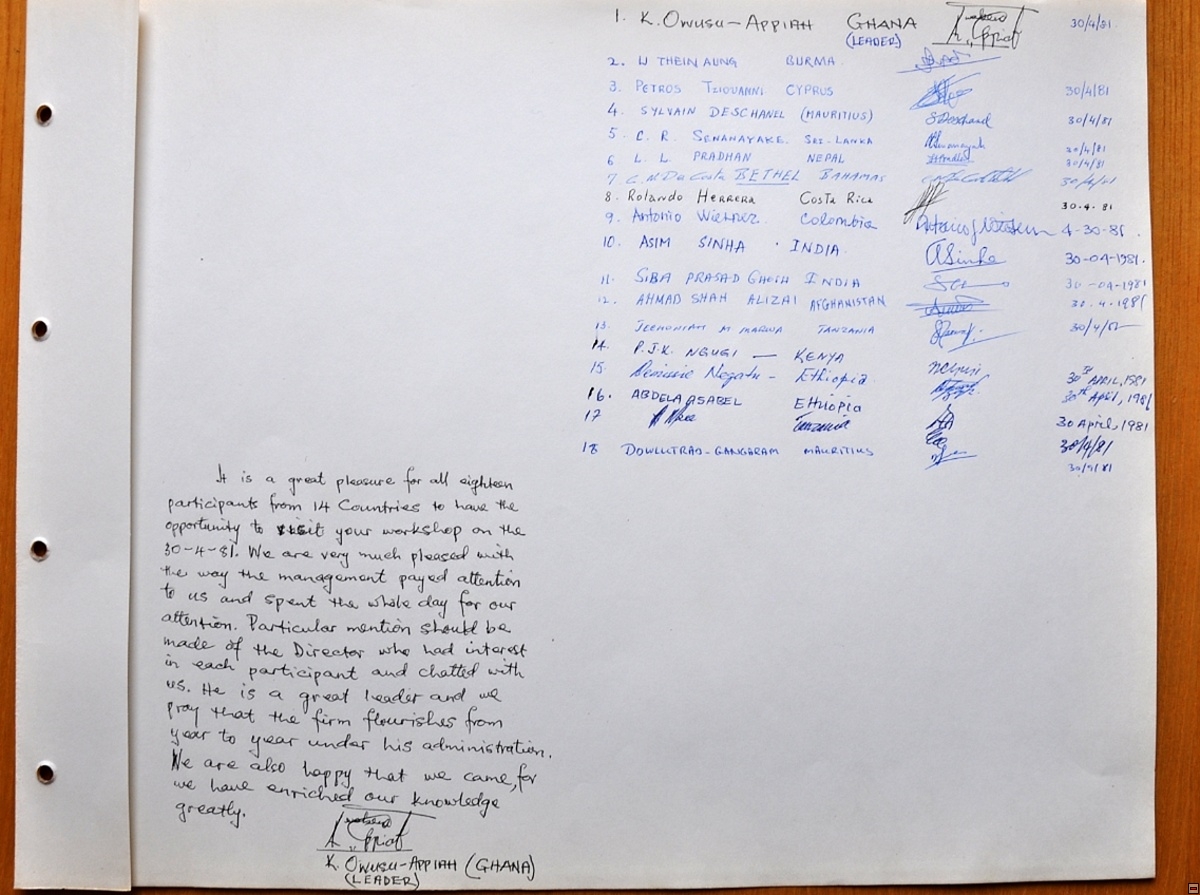 1. K. OWUSU-APPIAH GHANA 30/4/81
(LEADER)
2. U THEIN AUNG BURMA
3. PETROS TZIOVANNI CYPRUS 30/4/81
4. SYLVAIN DESCHANEL (MAURITIUS) S Deschanel 30/4/81
5. C. R. SENANAYAKE. SRI-LANKA 30/4/81
6 L. L. PRADHAN NEPAL 30/4/81
7 C. M. Da Costa BETHEL BAHAMAS 30/4/81
8. Rolando HERRERA COSTA Rica 30.4.81
9. Antonio Colombia 4-30-81.
10. ASIM SINHA INDIA ASinha 30-04-1981.
11. SIBA PRASAD GHOSH INDIA 30-04-1981
12. AHMAD SHAH ALIZAI AFGHANISTAN 30.4.1981
13. M MARWA TANZANIA
14. P.J.K. NGUGI — KENYA 30th APRIL, 1981
15. Negatu - Ethiopia 30th April, 1981
16. ABDELA ASABEL ETHIOPIA 30 April, 1981
17 Tanzania 30/4/81
18 DOWLUTRAO-GANGARAM MAURITIUS
It is a great pleasure for all eighteen
participants from 14 Countries to have the
opportunity to visit your workshop on the
30-4-81. We are very much pleased with
the way the management payed attention
to us and spent the whole day for our
attention. Particular mention should be
made of the Director who had interest
in each participant and chatted with
us. He is a great leader and we
pray that the firm flourishes from
year to year under his administration.
We are also happy that we came, for
we have enriched our knowledge
greatly.
K. OWUSU-APPIAH (GHANA)
(LEADER)